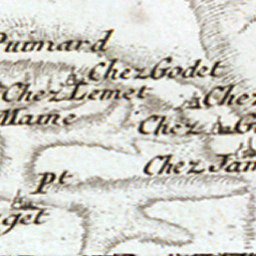 Puimard
Chez Godet
Chez Lemet
Chez
Maine
Chez
Chez Jam
Pt
get